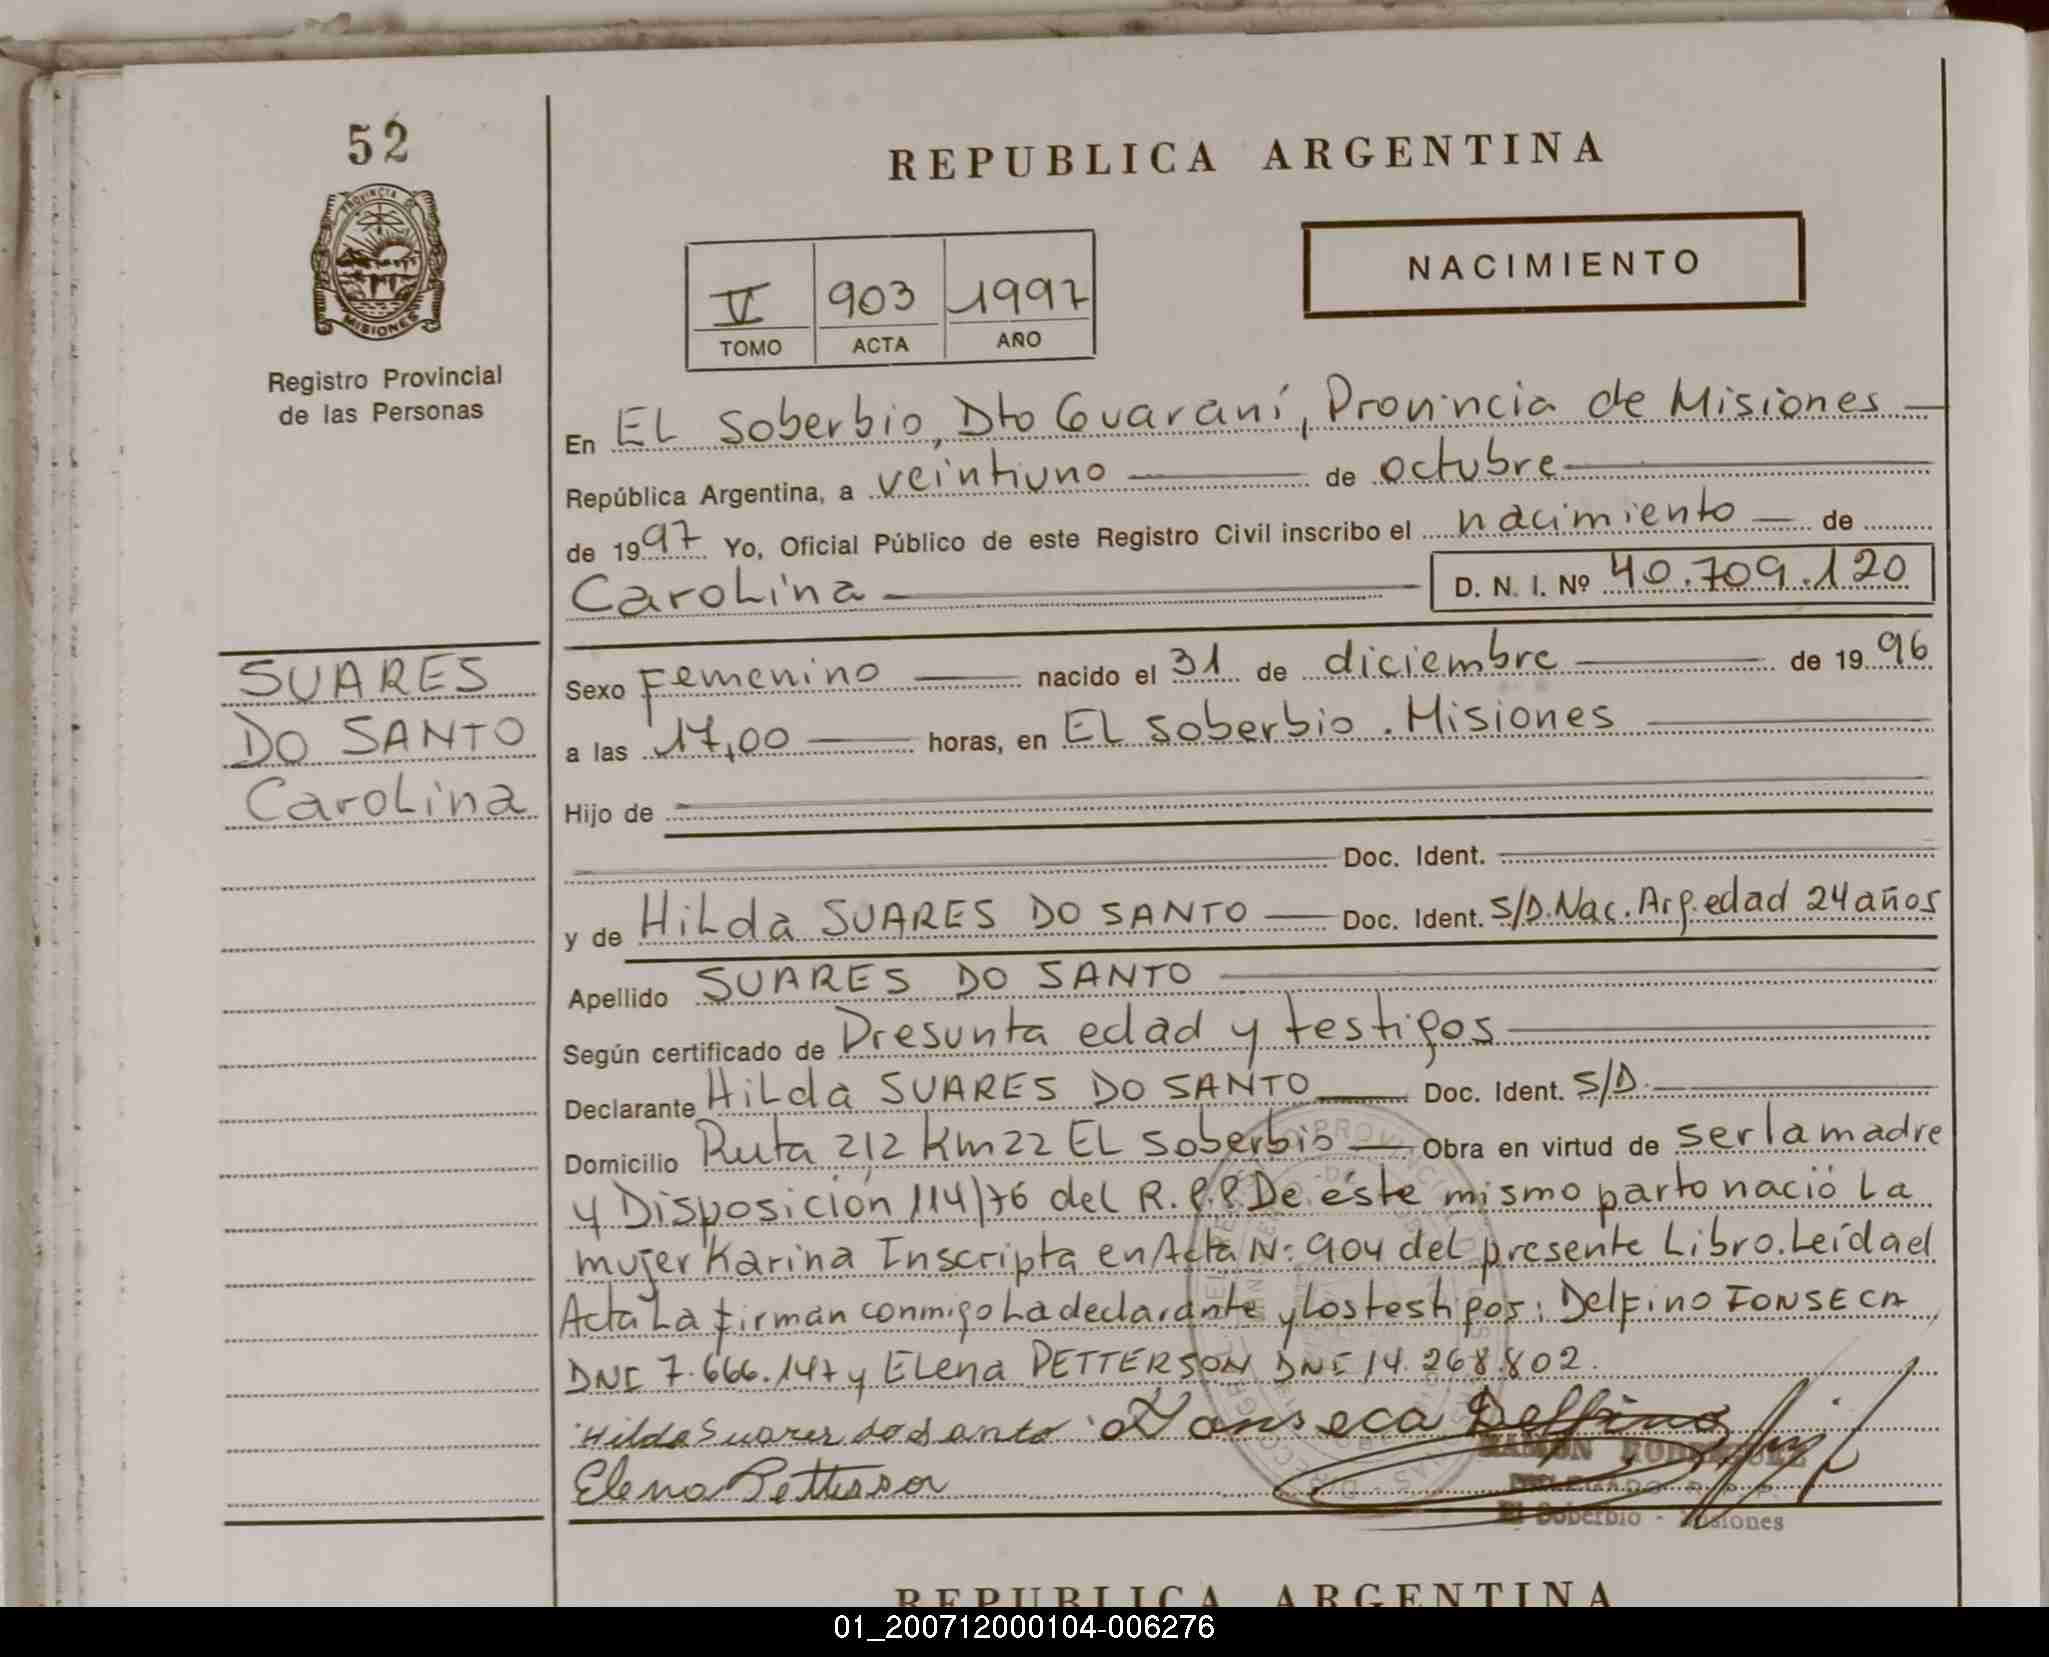 52
PROVINCIA DE
MISIONES
Registro Provincial
de las Personas
SUARES
DO SANTO
Carolina
REPUBLICA ARGENTINA
NACIMIENTO
V 903 1997
TOMO ACTA AÑO
En El Soberbio, Dto Guaraní, Provincia de Misiones
República Argentina, a veintiuno de octubre
de 1997 Yo, Oficial Público de este Registro Civil inscribo el nacimiento de
Carolina D. N. I. Nº 40.709.120
Sexo Femenino nacido el 31 de diciembre de 1996
a las 17,00 horas, en El Soberbio. Misiones
Hijo de
Doc. Ident.
y de Hilda SUARES DO SANTO Doc. Ident. S/D. Nac. Arg. edad 24 años
Apellido SUARES DO SANTO
Según certificado de Presunta edad y testigos
Declarante Hilda SUARES DO SANTO Doc. Ident. S/D.
Domicilio Ruta 212 Km 22 El Soberbio Obra en virtud de ser la madre
y Disposición 114/76 del R.P.P. De éste mismo parto nació la
mujer Karina Inscripta en Acta Nº 904 del presente Libro. Leída el
Acta la firman conmigo la declarante y los testigos: Delfino FONSECA
DNI 7.666.147 y Elena PETTERSON DNI 14.268.802.
Hilda Suares do Santo Fonseca Delfino
Elena Petterson
RAMON RODRIGUEZ
DELEGADO R. P. P.
El Soberbio - Misiones
REPUBLICA ARGENTINA
01_200712000104-006276